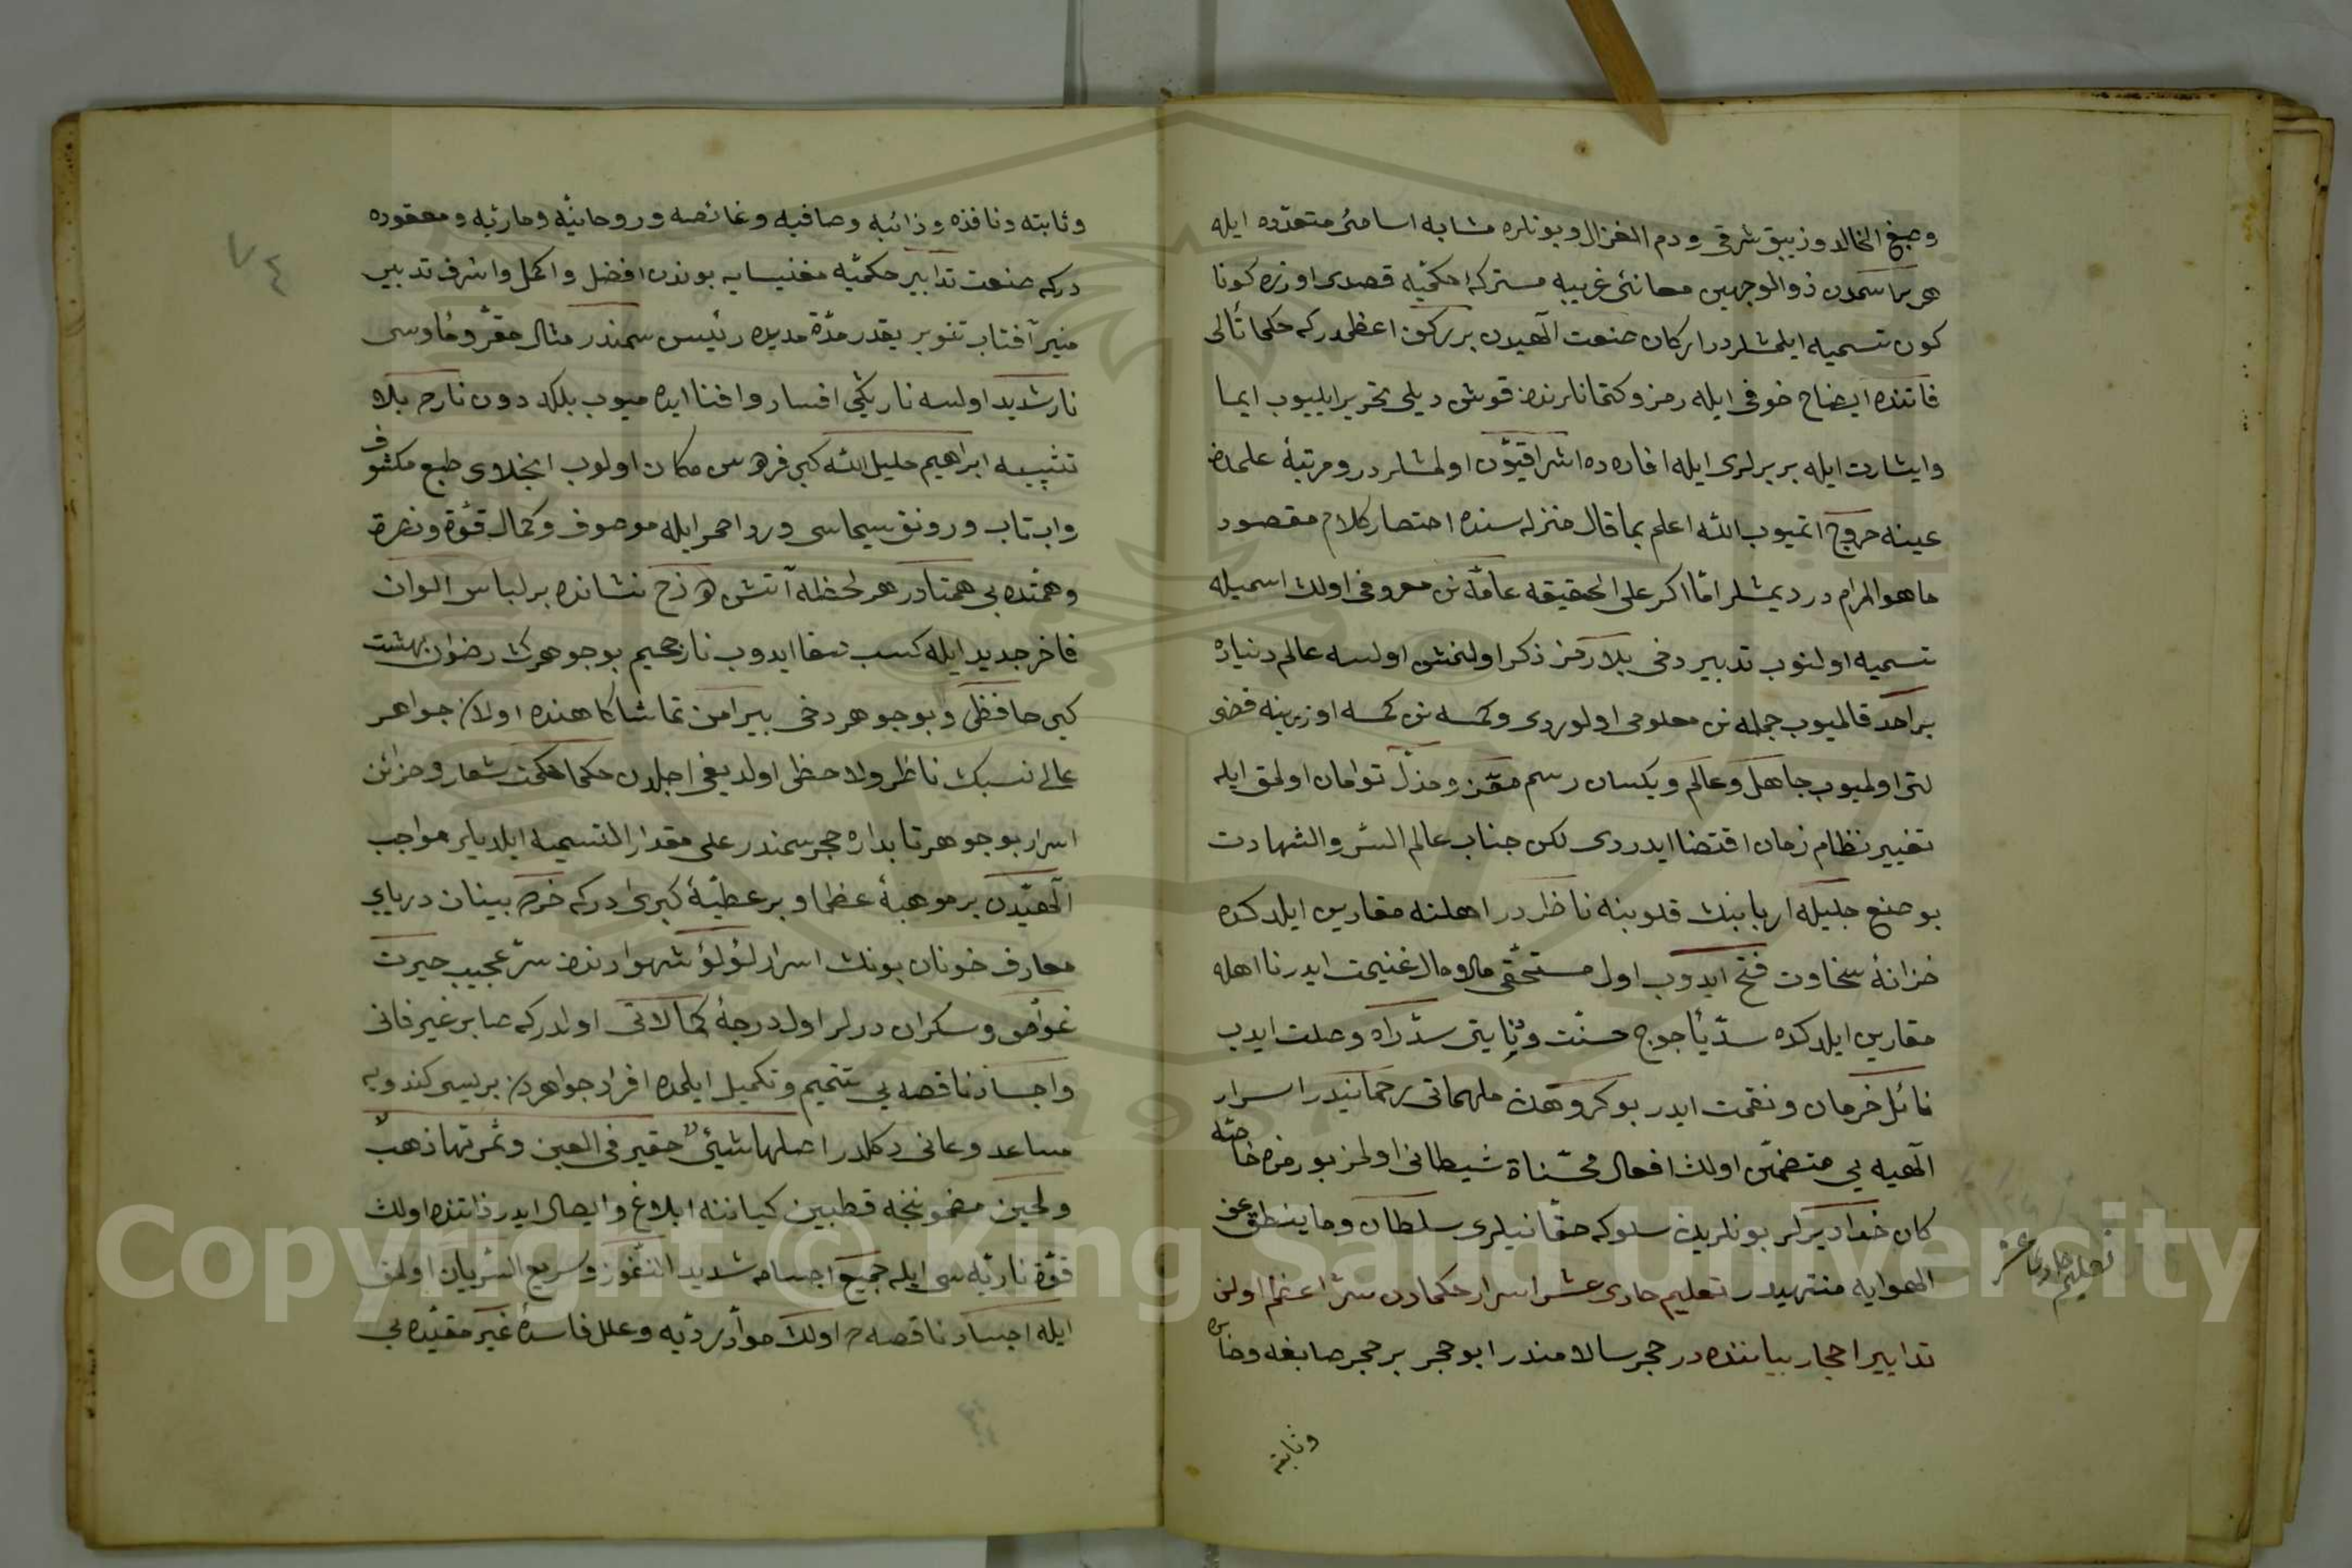 وصبغ الخالد وزيبق شرقى ودم الغزال وبونلره مشابه اسامئ متعدّده ايله
هر بر اسمدن ذو الوجهين معانئ غريبه مشتركۀ حكميّه قصدى اوزره كونا
كون تسميه ايلمشلردر اركان صنعت آلهيدن بر ركن اعظمدر كه حكما تألى
فاتنده ايضاح خوفى ايله رمز وكتمانلرنده قوش ديلى تحرير ايليوب ايما
وايشارت ايله بربرلرى ايله افاده ده اشراقيّون اولمشلردر ومرتبۀ علمدن
عينه خروج اتميوب الله اعلم بما قال منزله سنده اختصار كلام مقصود
ما هو المرام در ديمشلر امّا اكر على الحقيقه عامّه نن معروفى اولان اسميله
تسميه اولنوب تدبير دخى بلا رمز ذكر اولنمش اولسه عالم دنياده
بر احد قالميوب جمله نن معلومى اولوردى وكمسه نن كمسه اوزرينه فضى
لتى اولميوب جاهل وعالم ويكسان رسم معزز ومذلّ توامان اولمق ايله
تغيير نظام زمان اقتضا ايدردى لكن جناب عالم السّر والشهادت
بو صنع جليله اربابنك قلوبنه ناظر در اهلنه مقارين ايلدكده
خزانۀ سخاوت فتح ايدوب اول مستحقّى مالا مال غنيمت ايدر نا اهله
مقارين ايلدكده سدّ يأجوج حسنّت ودنايتى سدّ راه وصلت ايدب
نائل خرمان ونقمت ايدر بو كروهدن ملهماتى رحمانيدر اسرار
آلهيه يى متضمّن اولان افعال محسّناة شيطانى اولمز بو رمزه خاصّه
كان خداديرلر بونلريدن سلوكه حقّانيلرى سلطان وما ينطق عن
الهوايه منتهيدر تعليم حادى عشر اسرار حكمادن سرّ اعظم اولن
تدابير احجار بياننده در حجر سالامندر ابو حجر بر حجر صابغه وخاص
وثابته
تعليم حادى عشر
٧٤
وثابته ونافذه وذائبه وصافيه وغائصه وروحانيّه وماريّه ومعقوده
دركه صنعت تدابير حكميّه مغنيسايه بوندن افضل واكمل واشرف تدبير
منير آفتاب تنوير بقدر مدّة مديده رئيس سمندر مثال مقرّ ومأوسى
نار شديد اولسه نار يكى افسار وافنا ايده ميوب بلكه دون نارم بلاد
تثبيبه ابراهيم خليل الله كبى فرهس مكان اولوب انجلاى طبع مكشوف
واب تاب ورونق سيماسى ورد احمر ايله موصوف وكمال قوّة ونصرة
وهمّتده بى همتادر هر لحظه آتش دوزخ نشانده بر لباس الوان
فاخر جديد ايله كسب صفا ايدوب نار جحيم بو جوهرك رضوان بهشت
كبى حافظى وبو جوهر دخى بيرامن تماشا كاهنده اولان جواهر
عالى نسبك ناظر ولاحظى اولديغى اجلدن حكما حكمت شعار وخزائن
اسرار بو جوهر تابداره حجر سمندر على مقدار التسميه ايلديلر مواجب
آلهيدن بر موهبۀ عظما وبر عطيّۀ كبرى دركه خرده بينان درياى
معارف خونان بونك اسرار لؤلؤ شهوارندن سرّ عجيب حيرت
غواص وسكران درلر اول درجۀ كمالاتى اولدركه صابر غير فانى
واجساد ناقصه يى تتميم وتكميل ايلمده افراد جواهردن بريسى كندويه
مساعد وعانى دكلدر اصلها شيئٌ حقير فى العين وثمرتها ذهبٌ
ولجين مضموننجه قطبين كياننه ابلاغ وايصال ايدر ذاتنده اولان
قوّة ناريّه سى ايله جميع اجسامه شديد النّفوز وسريع السّريان اولمق
ايله اجساد ناقصه ده اولان موادّ رديّه وعلل فاسدۀ غير مقيّده يى